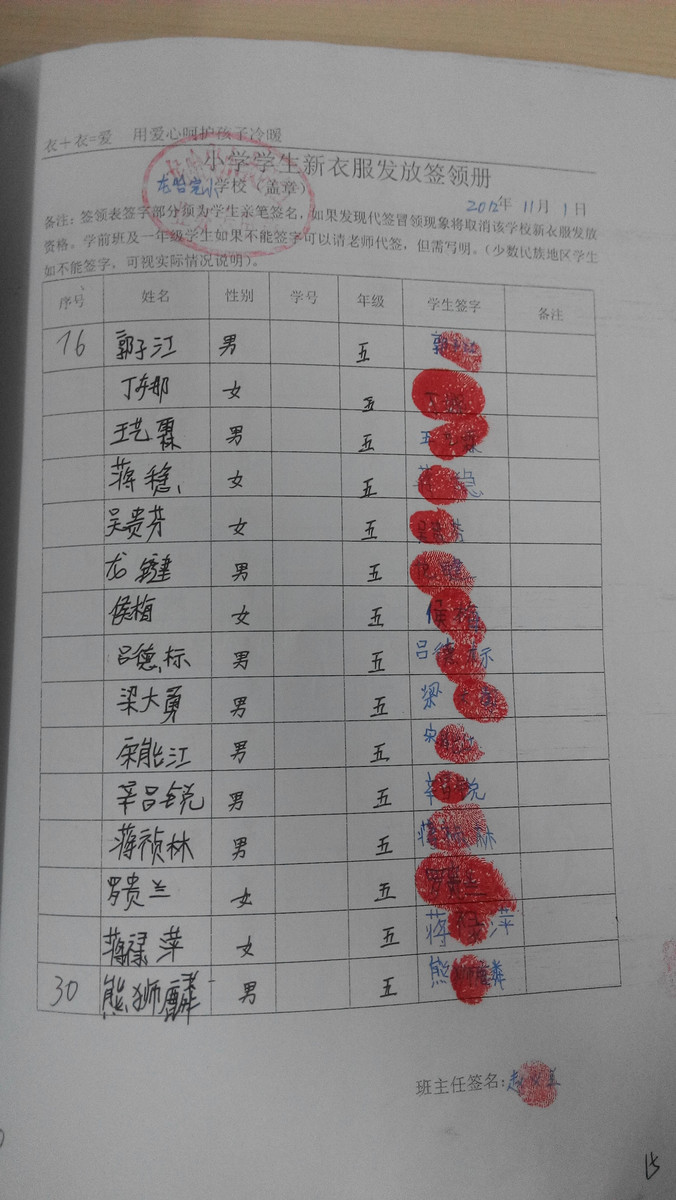 衣+衣=爱 用爱心呵护孩子冷暖
小学学生新衣服发放签领册
龙哈完小学校（盖章） 2012年 11月 1日
备注：签领表签字部分须为学生亲笔签名，如果发现代签冒领现象将取消该学校新衣服发放
资格。学前班及一年级学生如果不能签字可以请老师代签，但需写明。（少数民族地区学生
如不能签字，可视实际情况说明）。
序号 姓名 性别 学号 年级 学生签字 备注
16 郭子江 男 五 郭子江
丁存那 女 五
王艺霖 男 五 王艺霖
蒋稳 女 五 蒋稳
吴贵芬 女 五 吴贵芬
龙键 男 五 龙键
侯梅 女 五 侯梅
吕德标 男 五 吕德标
梁大勇 男 五 梁大勇
宋能江 男 五 宋能江
辛吕锐 男 五 辛吕锐
蒋祯林 男 五 蒋祯林
罗贵兰 女 五 罗贵兰
蒋禄萍 女 五 蒋禄萍
30 熊狮麟 男 五 熊狮麟
班主任签名:
15